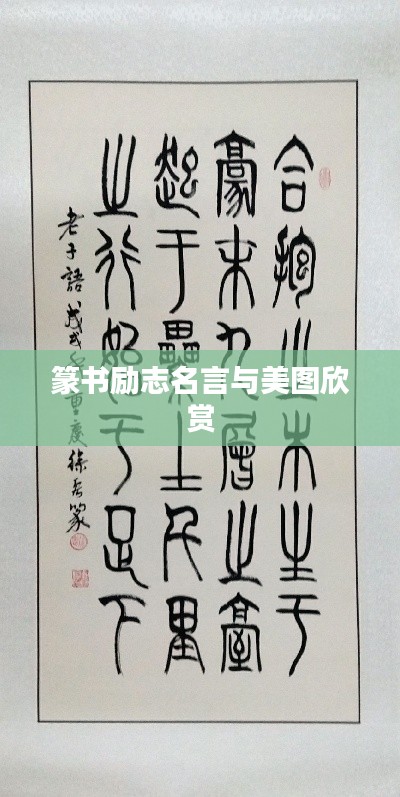 合抱之木生于
毫末九層之臺
起于纍土千里
之行始于足下
老子語戊戌重慶徐篆
篆书励志名言与美图欣
赏